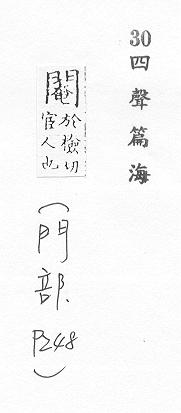 30四聲篇海
閹
於檢切
宦人也
(門部 P248)